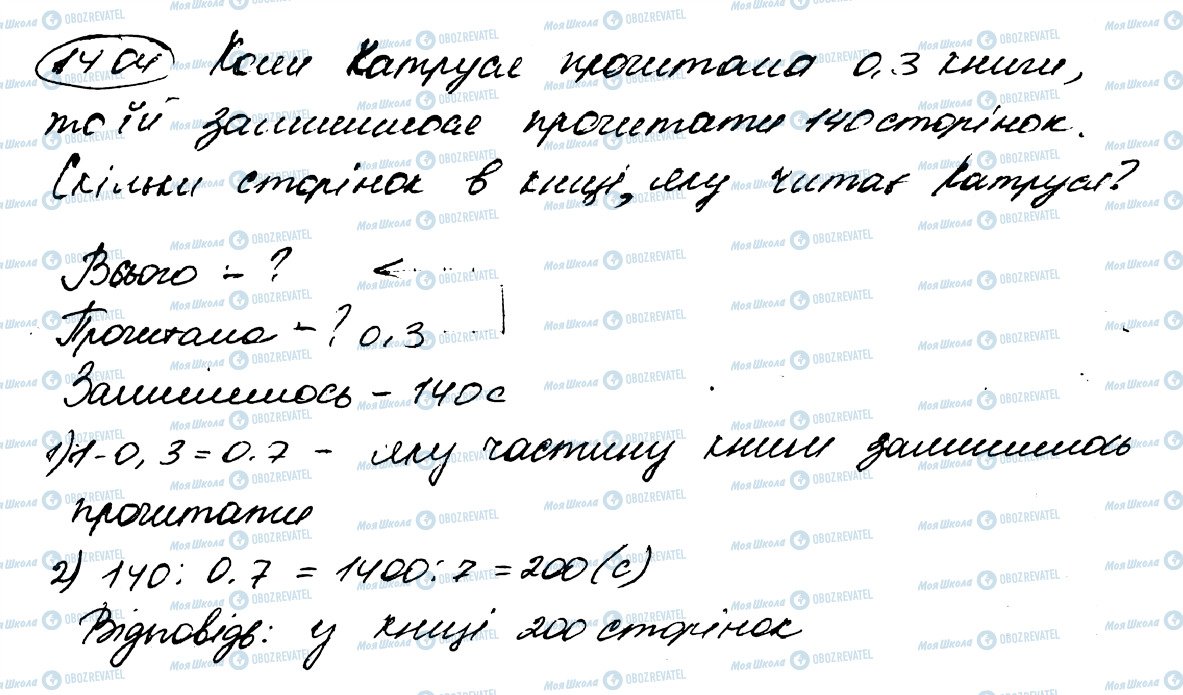 1404 Коли Катруся прочитала 0,3 книги,
то їй залишилося прочитати 140 сторінок.
Скільки сторінок в книці, яку читає Катруся?
Всього - ?
Прочитала - ? 0,3
Залишилось - 140 с
1) 1-0,3=0.7 - яку частину книги залишилось
прочитати
2) 140 : 0.7 = 1400 : 7 = 200 (с)
Відповідь: у книці 200 сторінок
МояШкола OBOZREVATEL